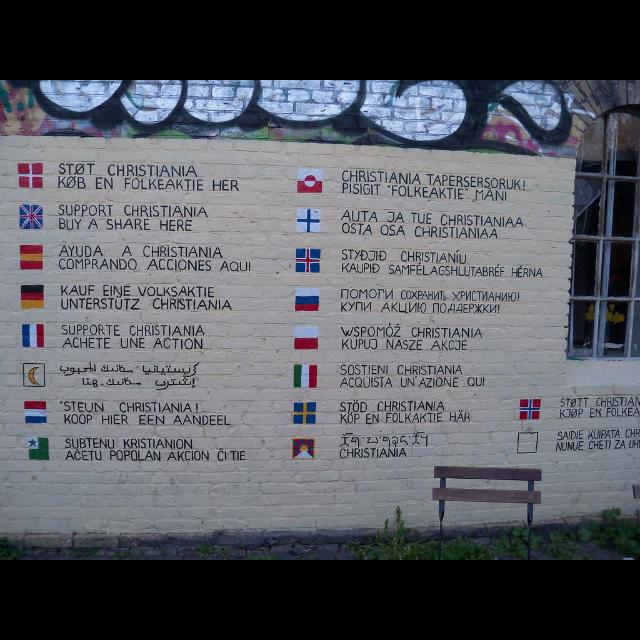 STØT CHRISTIANIA
KØB EN FOLKEAKTIE HER
SUPPORT CHRISTIANIA
BUY A SHARE HERE
AYUDA A CHRISTIANIA
COMPRANDO ACCIONES AQUI
KAUF EINE VOLKSAKTIE
UNTERSTÜTZ CHRISTIANIA
SUPPORTE CHRISTIANIA
ACHETE UNE ACTION
STEUN CHRISTIANIA!
KOOP HIER EEN AANDEEL
SUBTENU KRISTIANION
AĈETU POPOLAN AKCION ĈI TIE
CHRISTIANIA TAPERSERSORUK!
PISIGIT "FOLKEAKTIE" MANI
AUTA JA TUE CHRISTIANIAA
OSTA OSA CHRISTIANIAA
STYÐJIÐ CHRISTIANÍU
KAUPIÐ SAMFÉLAGSHLUTABRÉF HÉRNA
ПОМОГИ СОХРАНИТЬ ХРИСТИАНИЮ!
КУПИ АКЦИЮ ПОДДЕРЖКИ!
WSPOMÓŻ CHRISTIANIA
KUPUJ NASZE AKCJE
SOSTIENI CHRISTIANIA
ACQUISTA UN'AZIONE QUI
STÖD CHRISTIANIA
KÖP EN FOLKAKTIE HÄR
CHRISTIANIA
STØTT CHRISTIAN
KJØP EN FOLKEA
SAIDIE KUIPATA CHR
NUNUE CHETI ZA